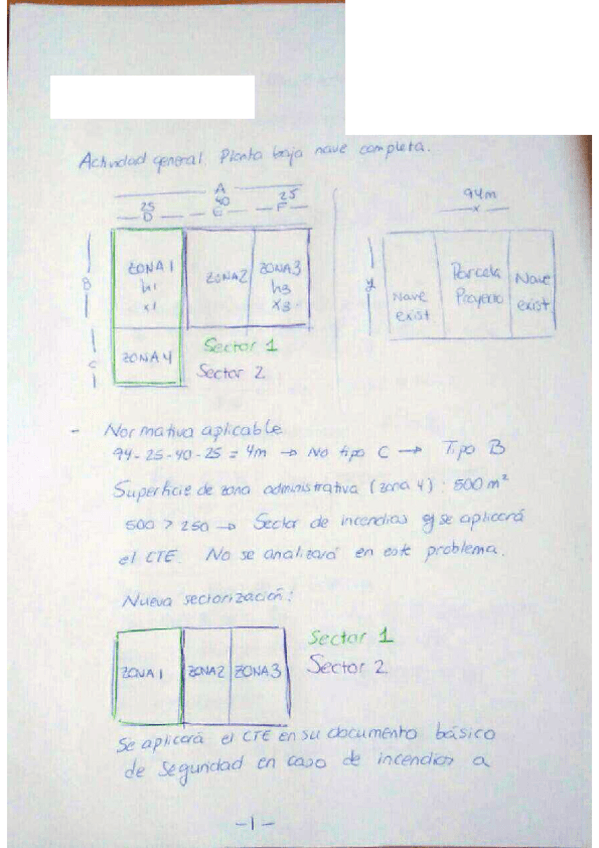 Actividad general. Planta baja nave completa.
A
25 40 25
D E F
B
ZONA 1
h1
x1
ZONA2
ZONA3
h3
x3
C
ZONA4
Sector 1
Sector 2
94m
x
y
Nave
exist
Parcela
Proyecto
Nave
exist
- Normativa aplicable
94-25-40-25 = 4m → No tipo C → Tipo B
Superficie de zona administrativa (zona 4): 500 m²
500 > 250 → Sector de incendios y se aplicará
el CTE. No se analizará en este problema.
Nueva sectorización:
ZONA 1 ZONA2 ZONA3
Sector 1
Sector 2
Se aplicará el CTE en su documento básico
de seguridad en caso de incendios a
-1-